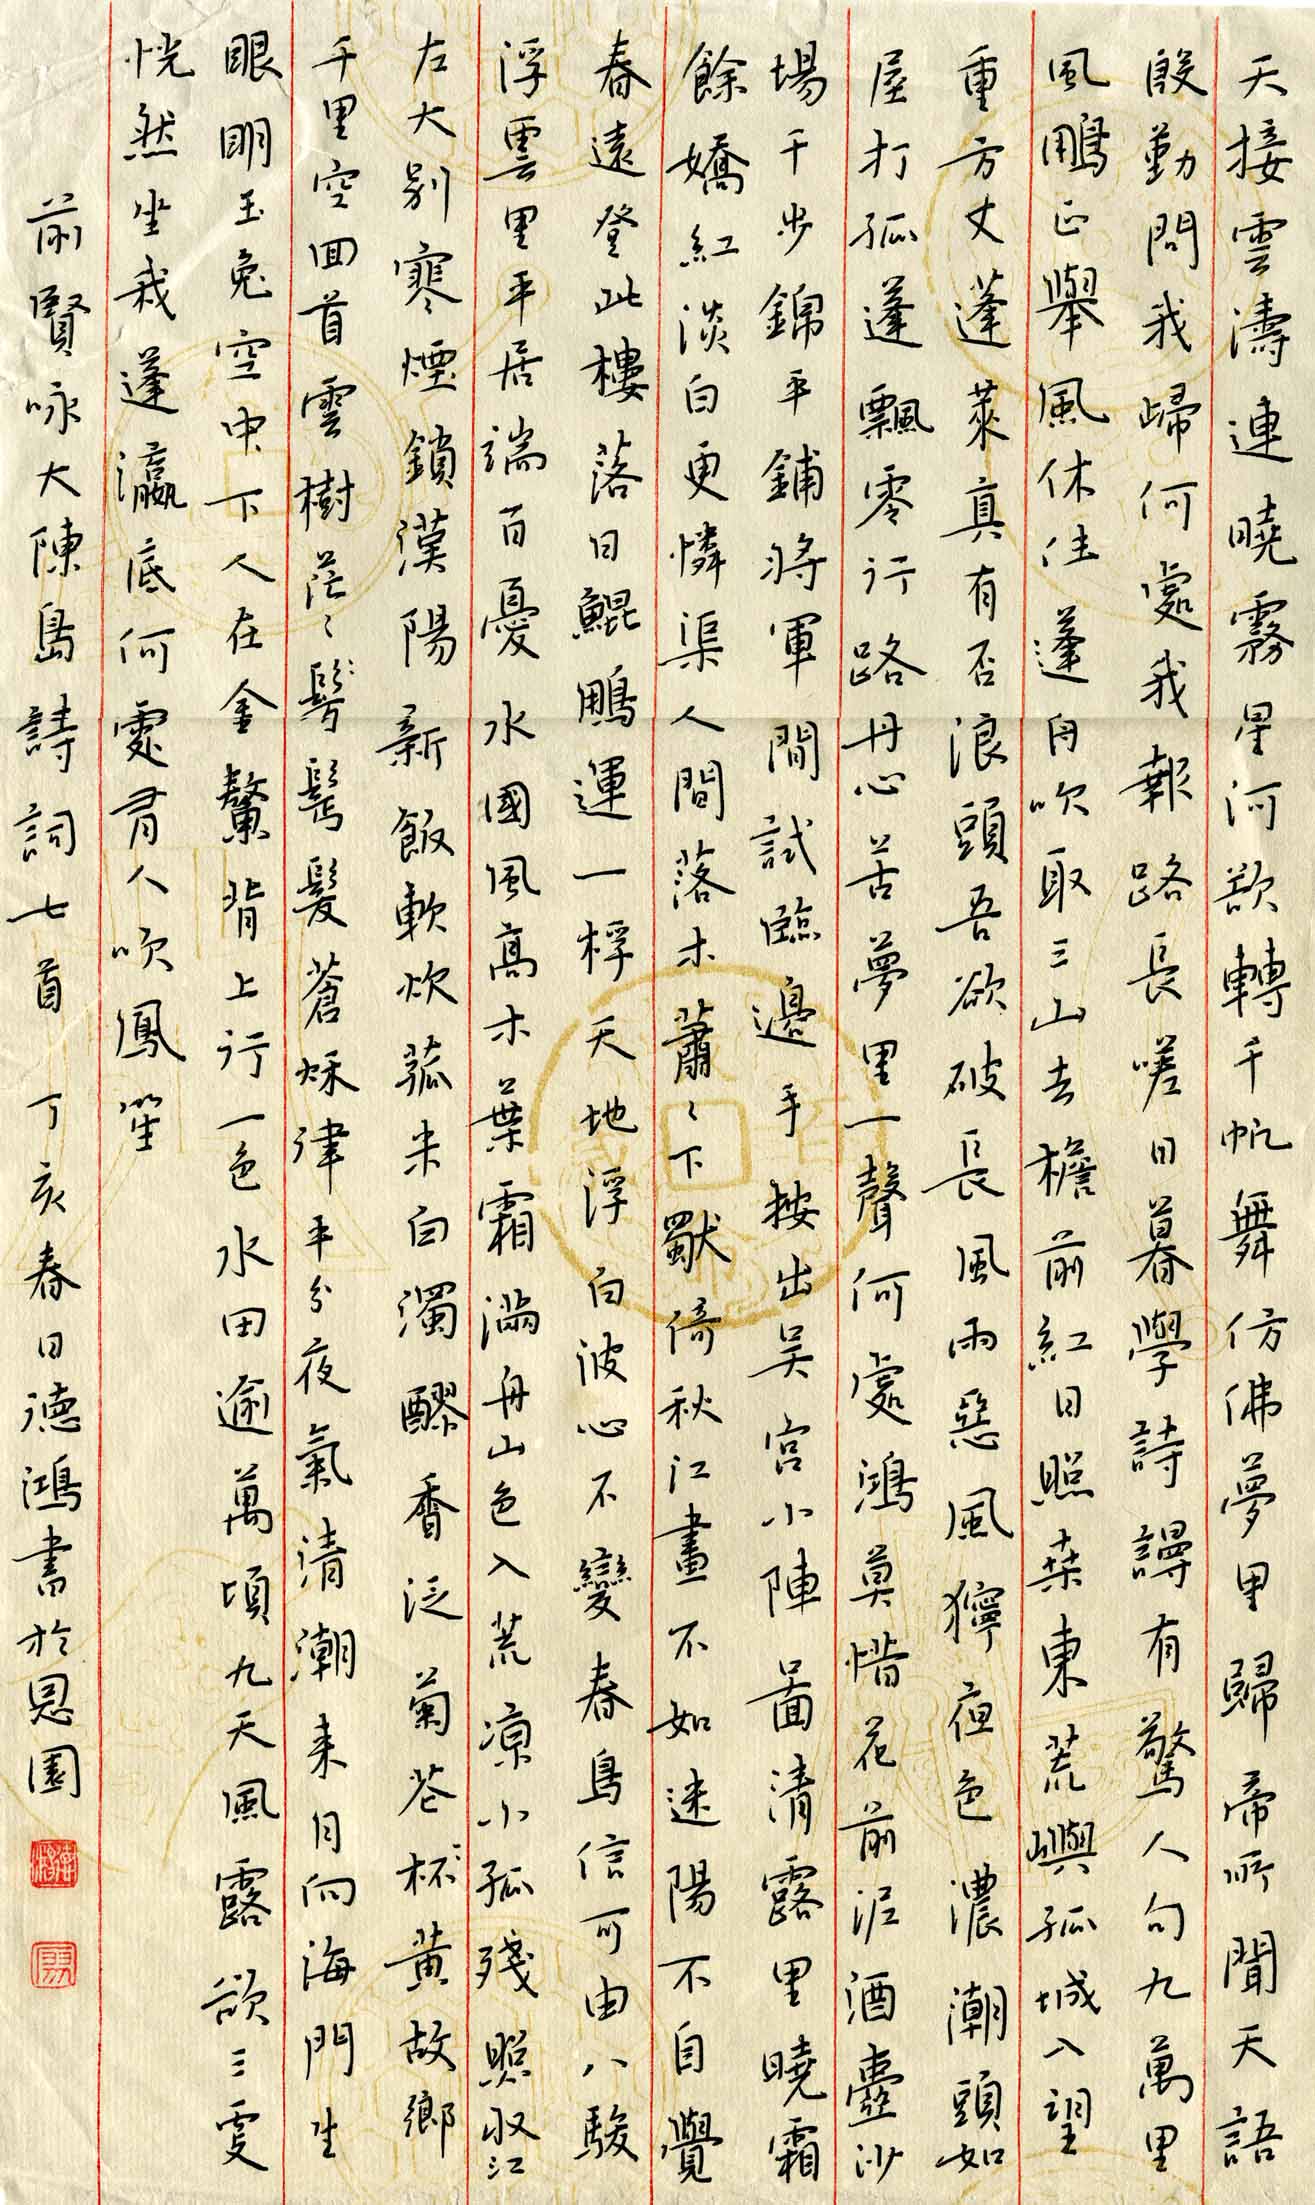 天接雲濤連曉霧星河欲轉千帆舞仿佛夢里歸帝所聞天語
殷勤問我歸何處我報路長嗟日暮學詩謾有驚人句九萬里
風鵬正舉風休住蓬舟吹取三山去檐前紅日照桒東荒嶼孤城入望
重方丈蓬萊真有否浪頭吾欲破長風雨惡風獰夜色濃潮頭如
屋打孤蓬飄零行路丹心苦夢里一聲何處鴻莫惜花前泥酒壺沙
場千步錦平鋪將軍閒試臨邊手按出吴宫小陣圖清露里曉霜
餘嬌紅淡白更憐渠人間落木蕭ミ下獸倚秋江畫不如迷陽不自覺
春遠登此樓落日鯤鵬運一桴天地浮白波心不變春鳥信可由八駿
浮雲里平居端百憂水國風高木葉霜滿舟山色入荒凉小孤殘照收江
左大别寒煙鎖漢陽新飯軟炊菰米白濁醪香泛菊花杯黄故鄉
千里空回首雲樹茫ミ髣髴髮蒼秌津平分夜氣清潮来月向海門生
眼明玉兔空中下人在金鰲背上行一色水田逾萬頃九天風露欲三更
恍然坐我蓬瀛底何處有人吹鳳笙
前賢咏大陳島詩詞七首 丁亥春日德鴻書於恩園